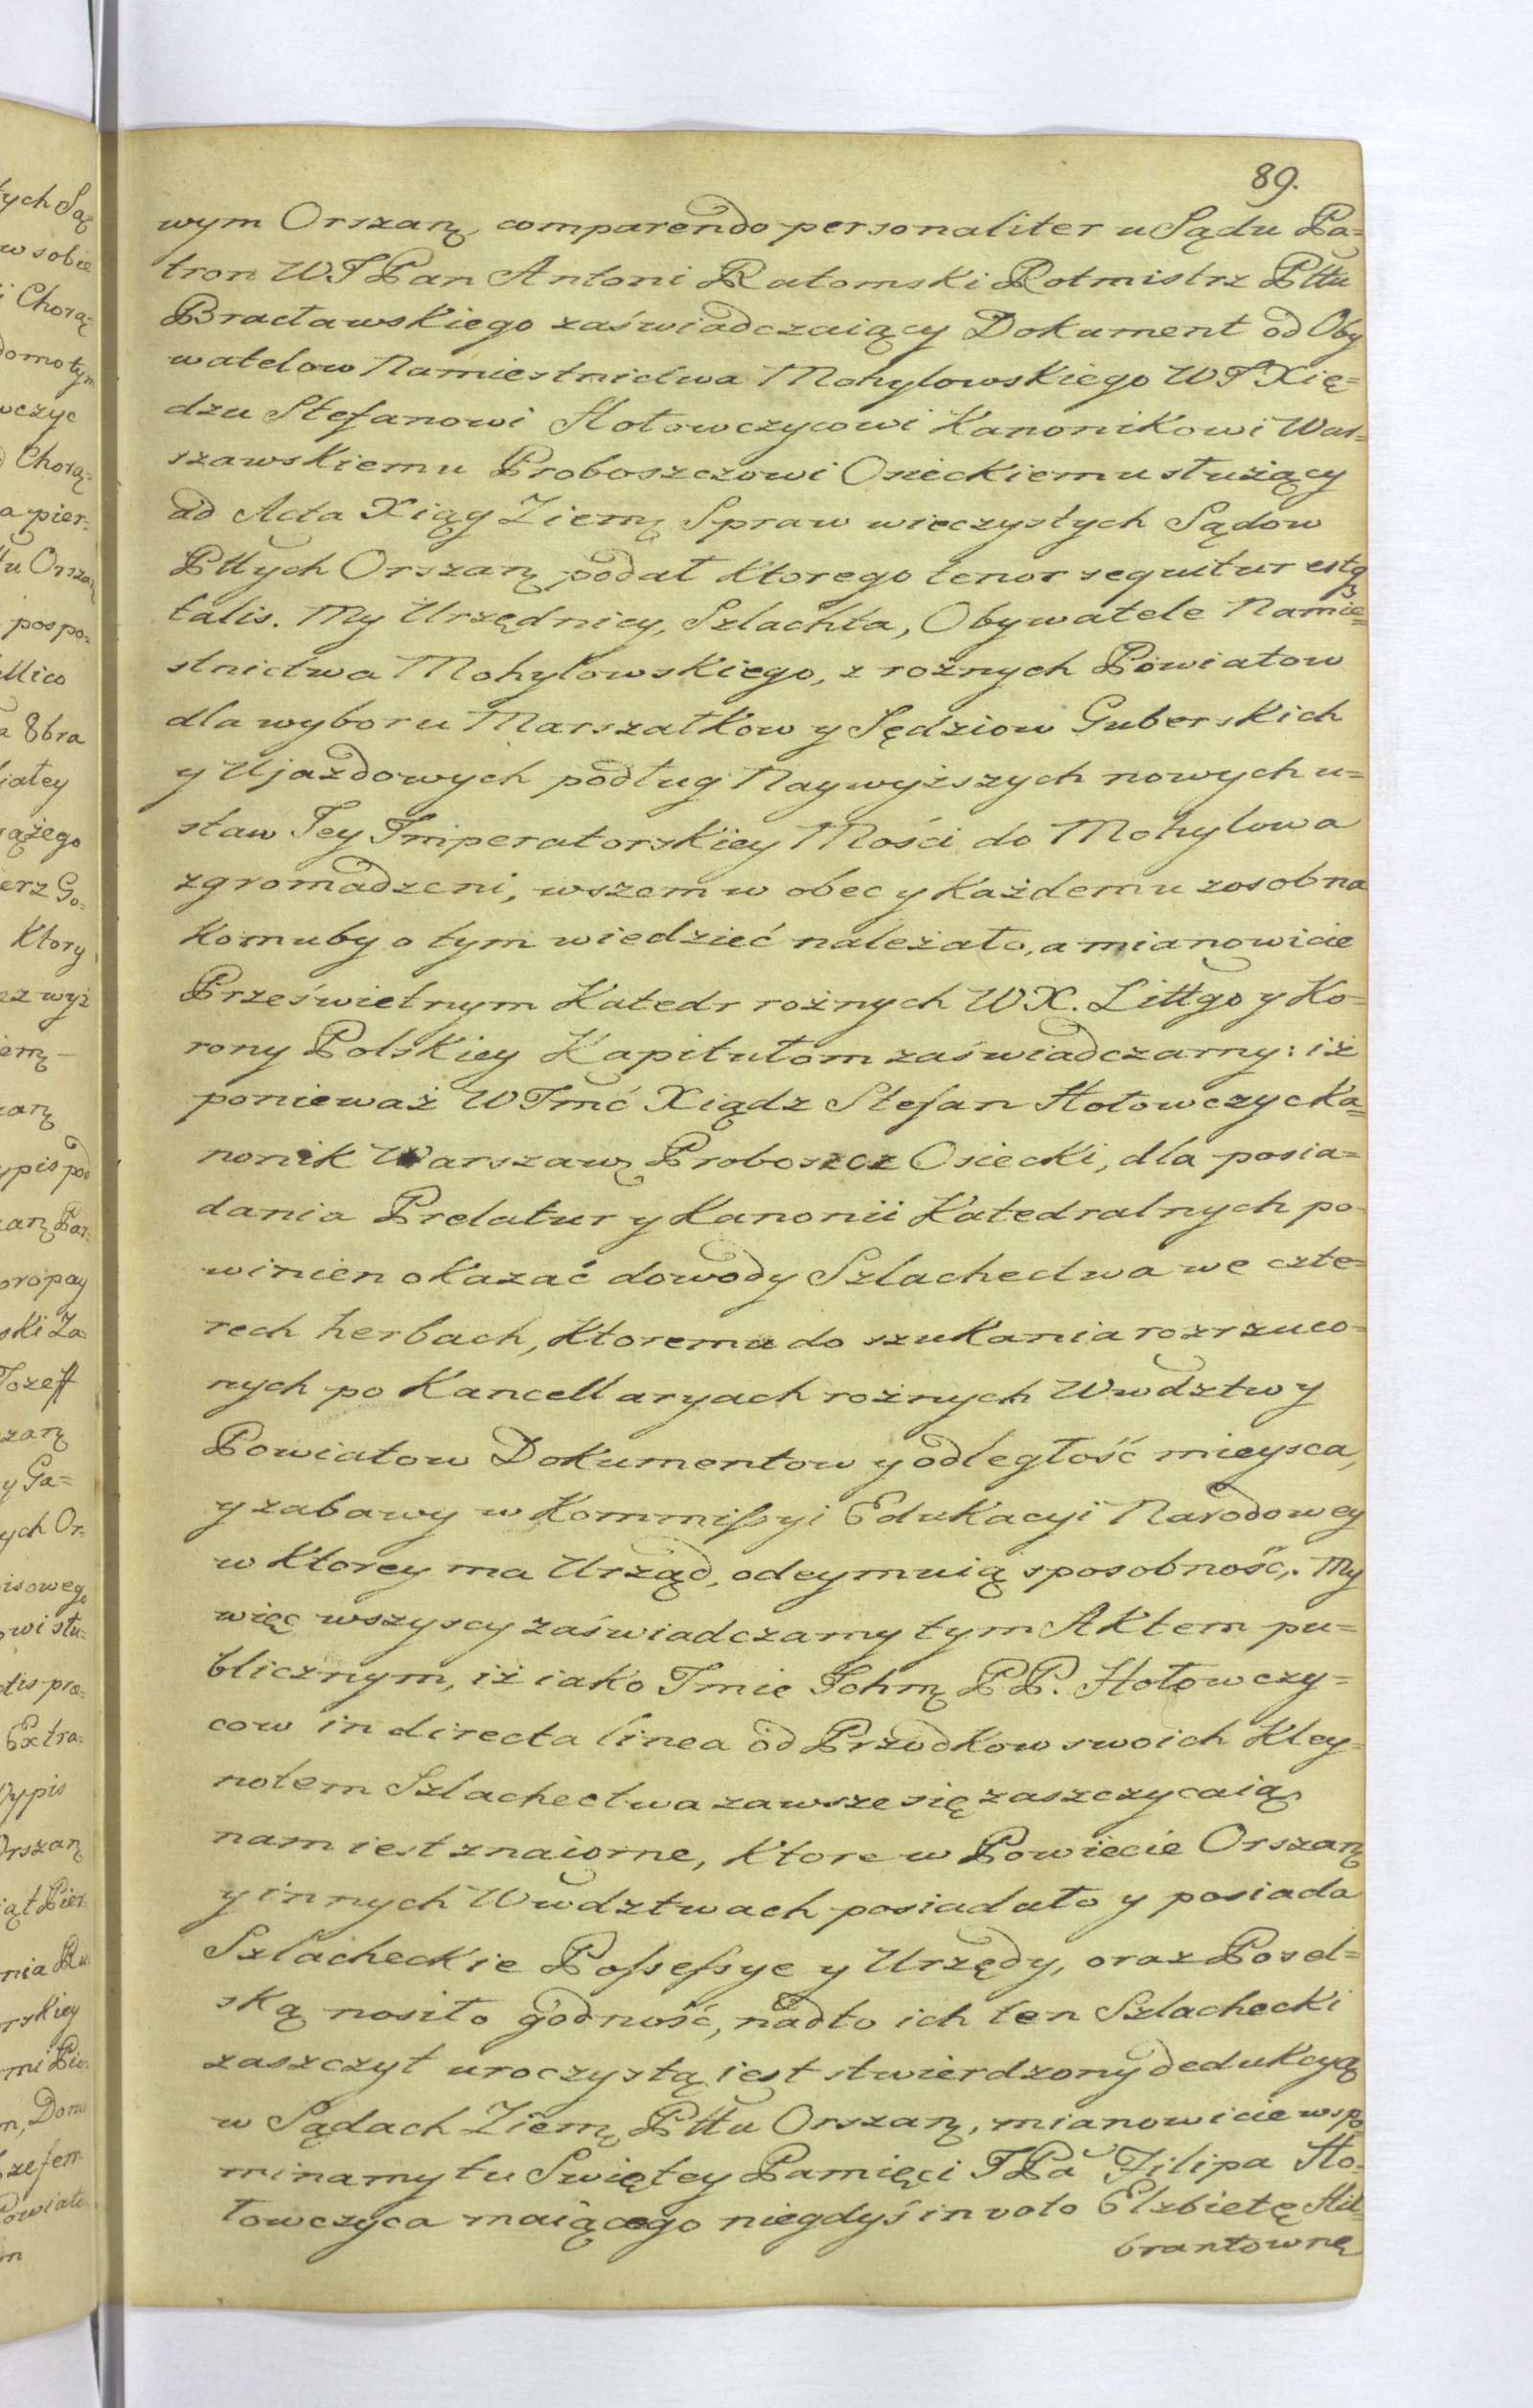 89.
wym Orszań comparendo personaliter u Sądu Pa=
tron WJPan Antoni Ratomski Rotmistrz Pttu
Bracławskiego zaświadczaiący Dokument od Oby
watelow Namiestnictwa Mohylowskiego WJXię=
dzu Stefanowi Hołowczycowi Kanonikowi War=
szawskiemu Proboszczowi Osieckiemu służący
ad Acta Xiąg Ziem Spraw wieczystych Sądow
Pttych Orszań podał ktorego tenor sequitur estq
talis. My Urzędnicy, Szlachta, Obywatele Namie=
stnictwa Mohylowskiego, z rożnych Powiatow
dla wyboru Marszałkow y Sędziow Guberskich
y Ujazdowych podług Naywyższych nowych u=
staw Jey Imperatorskiey Mości do Mohylowa
zgromadzeni, wszem w obec y każdemu zosobna
komuby o tym wiedzieć należało, a mianowicie
Prześwietnym Katedr rożnych WX. Littgo y Ko=
rony Polskiey Kapitułom zaświadczamy: iż
ponieważ WJmć Xiądz Stefan Hołowczyc Ka=
nonik Warszaw Proboszcz Osiecki, dla posia=
dania Prelatur y Kanonii Katedralnych po=
winien okazać dowody Szlachectwa we czte=
rech herbach, ktoremu do szukania rozrzuco=
nych po Kancellaryach rożnych Wwdztw y
Powiatow Dokumentow y odległość mieysca,
y zabawy w Kommissyi Edukacyi Narodowey
w ktorey ma Urząd, odeymuią sposobność. My
więc wszyscy zaświadczamy tym Aktem pu=
blicznym, iż iako Jmie Jchm PP. Hołowczy=
cow in directa linea od Przodkow swoich Kley=
notem Szlachectwa zawsze się zaszczycaią
nam iest znaiome, ktore w Powiecie Orszań
y innych Wwdztwach posiadało y posiada
Szlacheckie Possessye y Urzędy, oraz Posel=
ską nosiło godność, nadto ich ten Szlachecki
zaszczyt uroczystą iest stwierdzony dedukcyą
w Sądach Ziem Pttu Orszań, mianowicie wspo
minamy tu Swiętey Pamięci JPa Filipa Ho=
łowczyca maiącego niegdyś in voto Elzbietę Hil=
brantownę